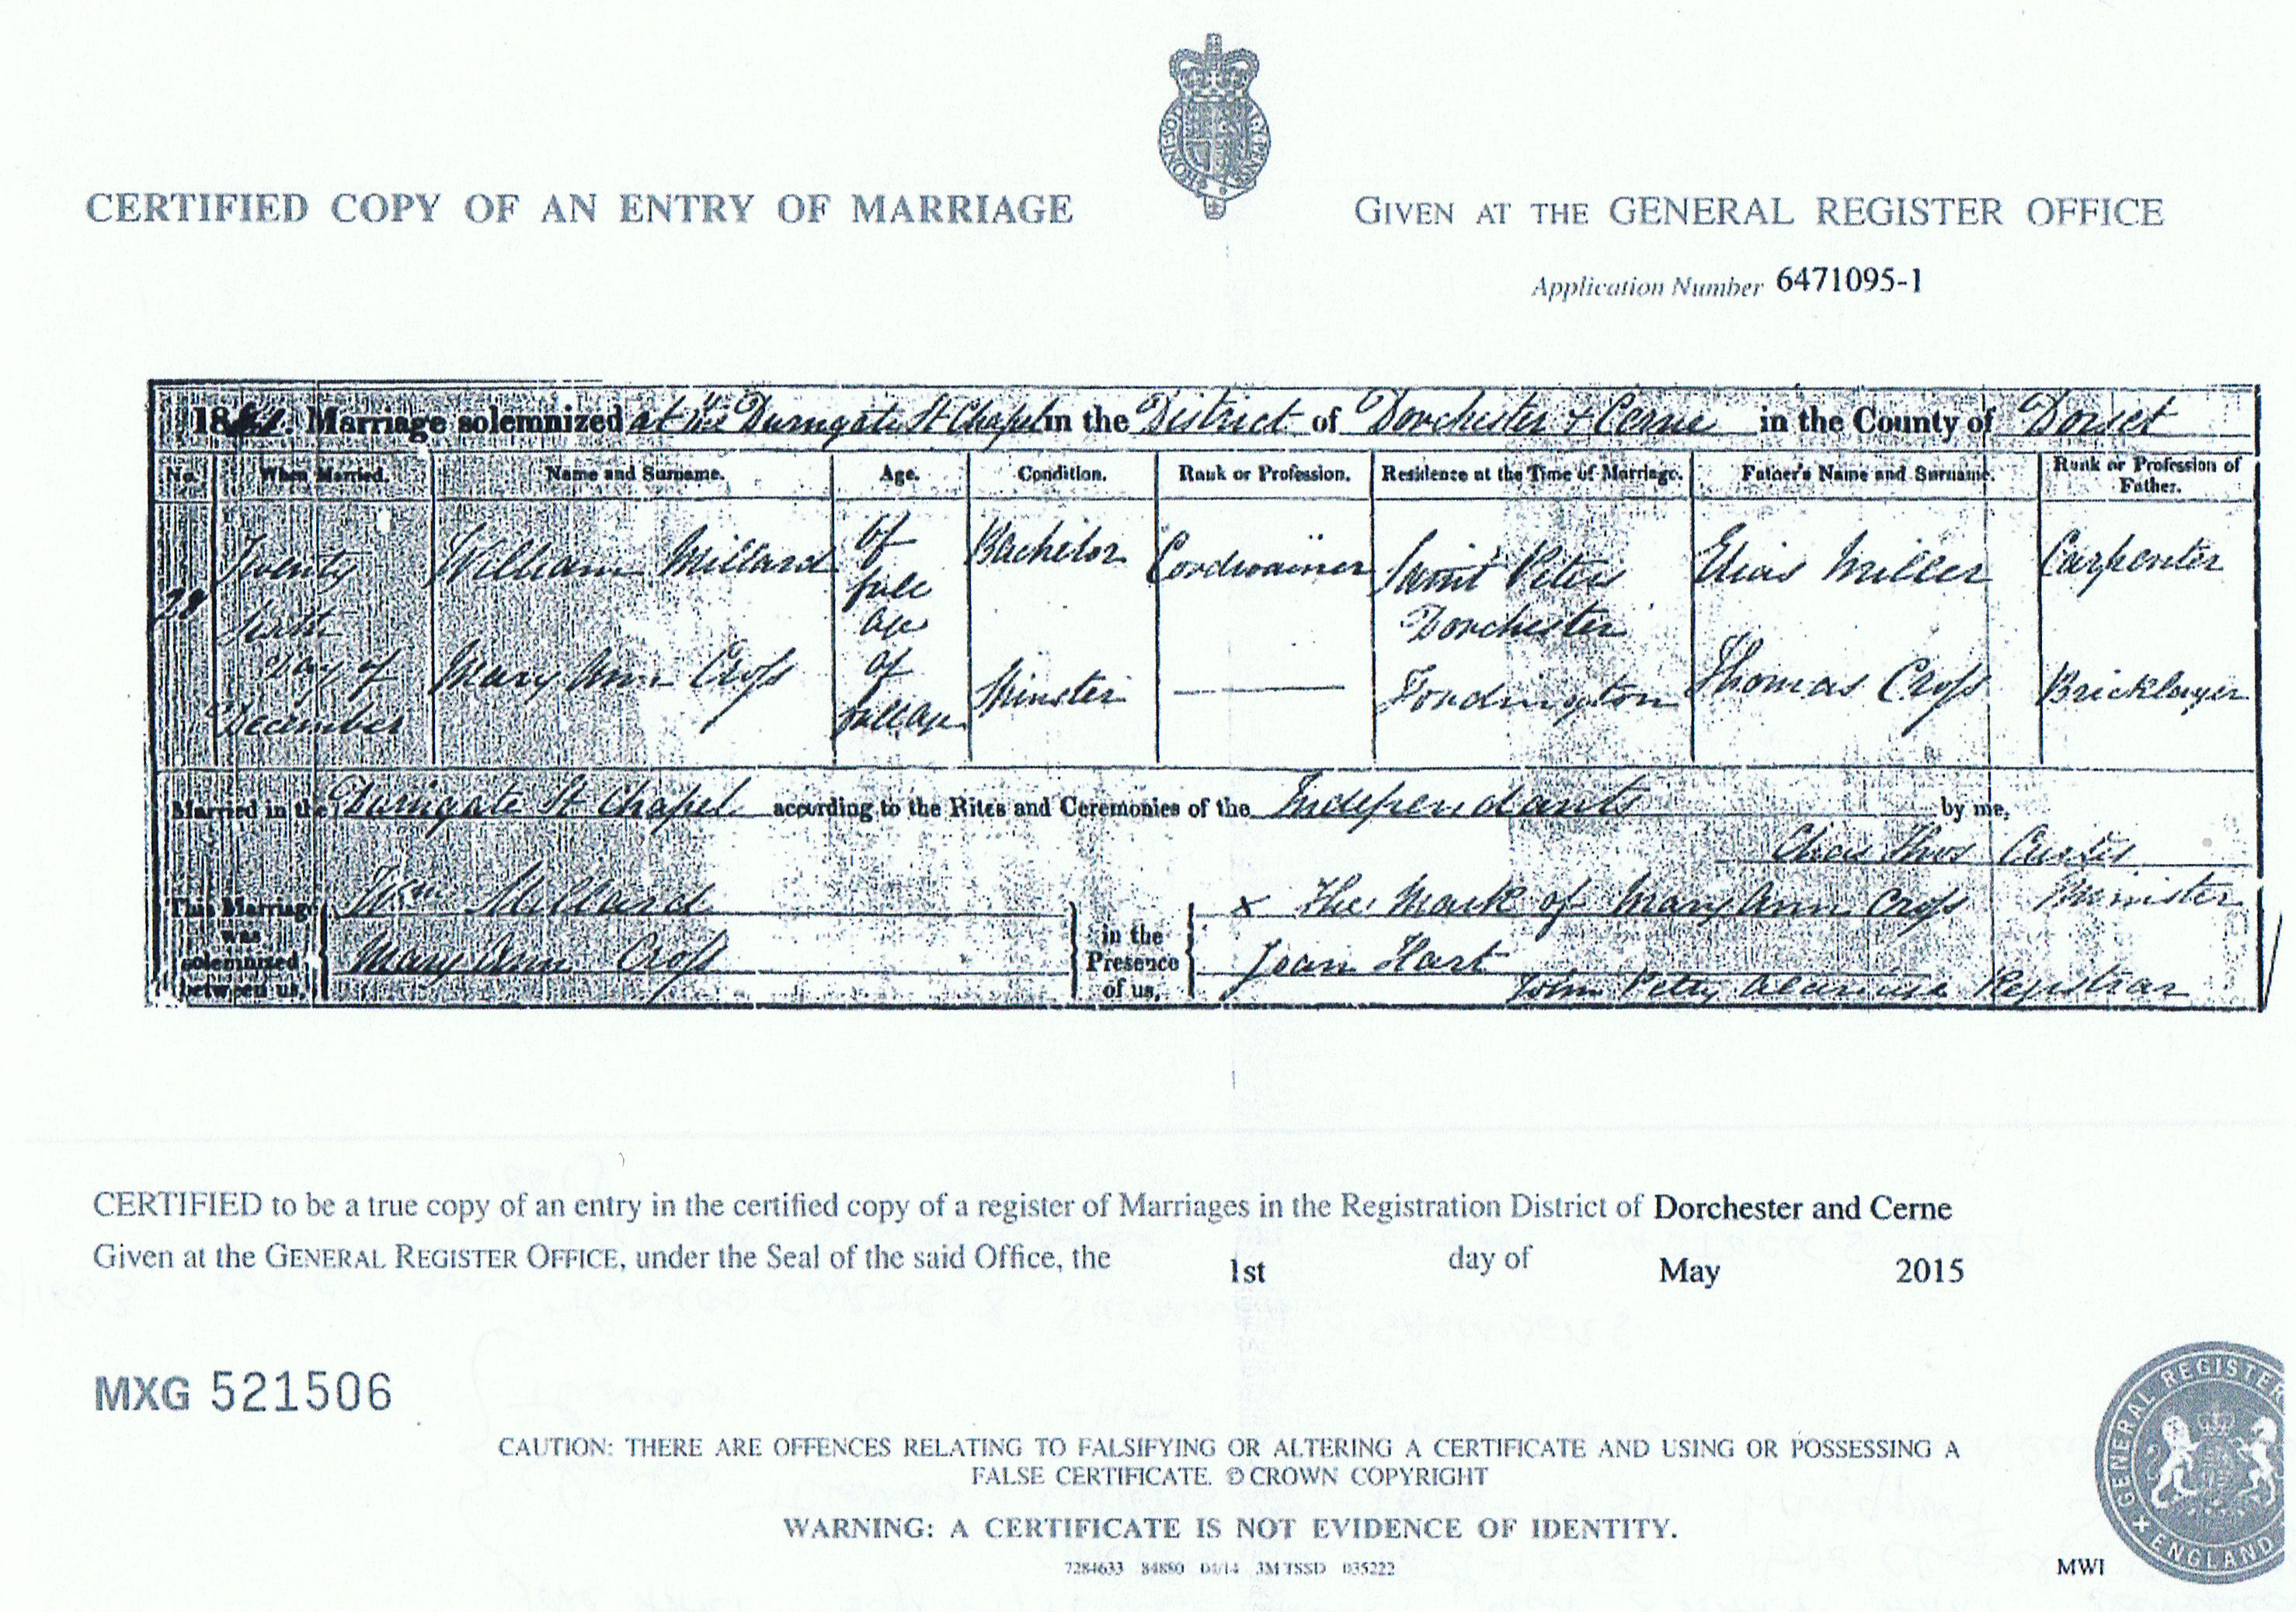 CERTIFIED COPY OF AN ENTRY OF MARRIAGE
GIVEN AT THE GENERAL REGISTER OFFICE
Application Number 6471095-1
18 Marriage solemnized at the Durngate St Chapel in the District of Dorchester & Cerne in the County of Dorset
No. When Married. Name and Surname. Age. Condition. Rank or Profession. Residence at the Time of Marriage. Father's Name and Surname. Rank or Profession of Father.
Twenty sixth Day of December
William Millard Of full age Bachelor Cordwainer Saint Peters Dorchester Elias Miller Carpenter
Mary Ann Cross Of full age Spinster Fordington Thomas Cross Bricklayer
Married in the Durngate St Chapel according to the Rites and Ceremonies of the Independants by me,
Chas Thos Curtis
Minister
This Marriage was solemnized between us, Wm Millard
Mary Ann Cross
in the Presence of us, x The Mark of Mary Ann Cross
Jean Hart
John Petty Registrar
CERTIFIED to be a true copy of an entry in the certified copy of a register of Marriages in the Registration District of Dorchester and Cerne
Given at the GENERAL REGISTER OFFICE, under the Seal of the said Office, the 1st day of May 2015
MXG 521506
CAUTION: THERE ARE OFFENCES RELATING TO FALSIFYING OR ALTERING A CERTIFICATE AND USING OR POSSESSING A
FALSE CERTIFICATE. © CROWN COPYRIGHT
WARNING: A CERTIFICATE IS NOT EVIDENCE OF IDENTITY.
7284633 84880 04/14 3MTSSD 035222
MWI
GENERAL REGISTER
ENGLAND